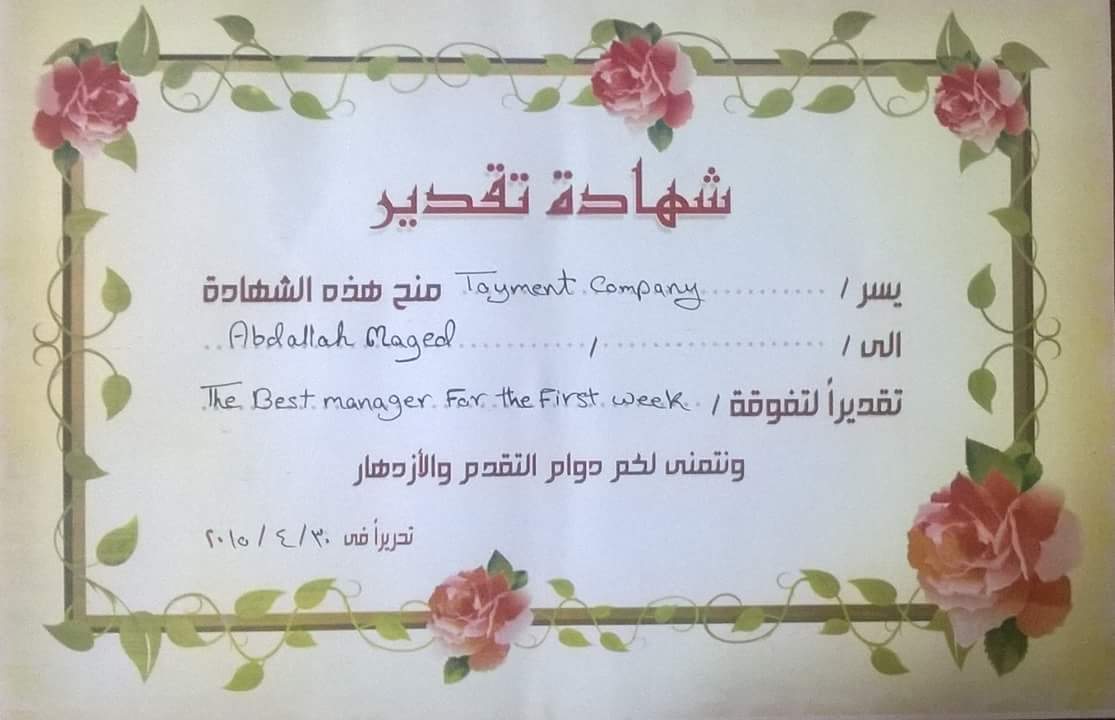 شهادة تقدير
يسر / Tayment Company منح هذه الشهادة
الى / / Abdallah Maged
تقديراً لتفوقة / The Best manager For the First week
ونتمنى لكم دوام التقدم والأزدهار
تحريراً فى ٣٠ / ٤ / ٢٠١٥